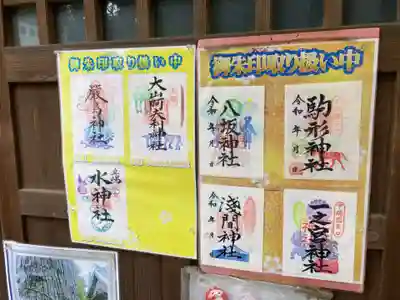 御朱印取り扱い中
厳島神社
大山阿夫利神社
水神社
御朱印取り扱い中
八坂神社
令和 年 月 日
駒形神社
令和 年 月 日
浅間神社
令和 年 月 日
一之宮神社